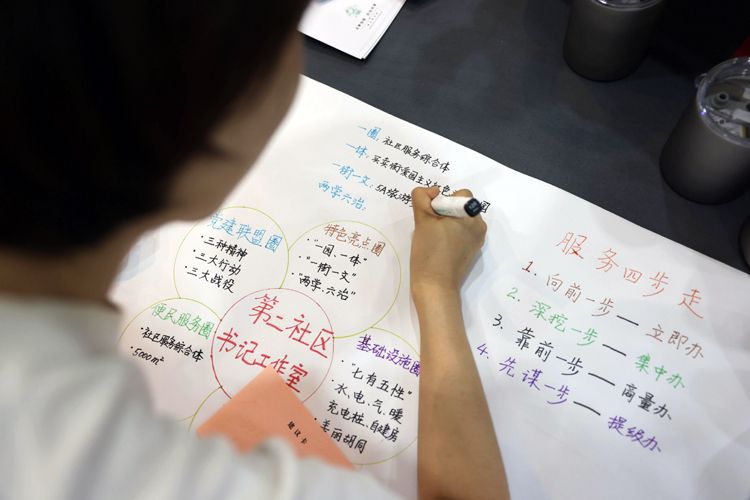 一圈:社区服务综合体
一体:买卖街爱国主义红色
一街一文:5A旅游
圈
两学六治:
党建联盟圈
·三种精神
·三大行动
·三大战役
特色亮点圈
·"一圈、一体"
·"一街一文"
·"两学、六治"
便民服务圈
·社区服务综合体
·5000m²
第二社区
书记工作室
基础设施圈
·"七有五性"
·水、电、气、暖
充电桩、自建房
·美丽胡同
建议卡
服务四步走
1. 向前一步——立即办
2. 深挖一步——集中办
3. 靠前一步——商量办
4. 先谋一步——提级办